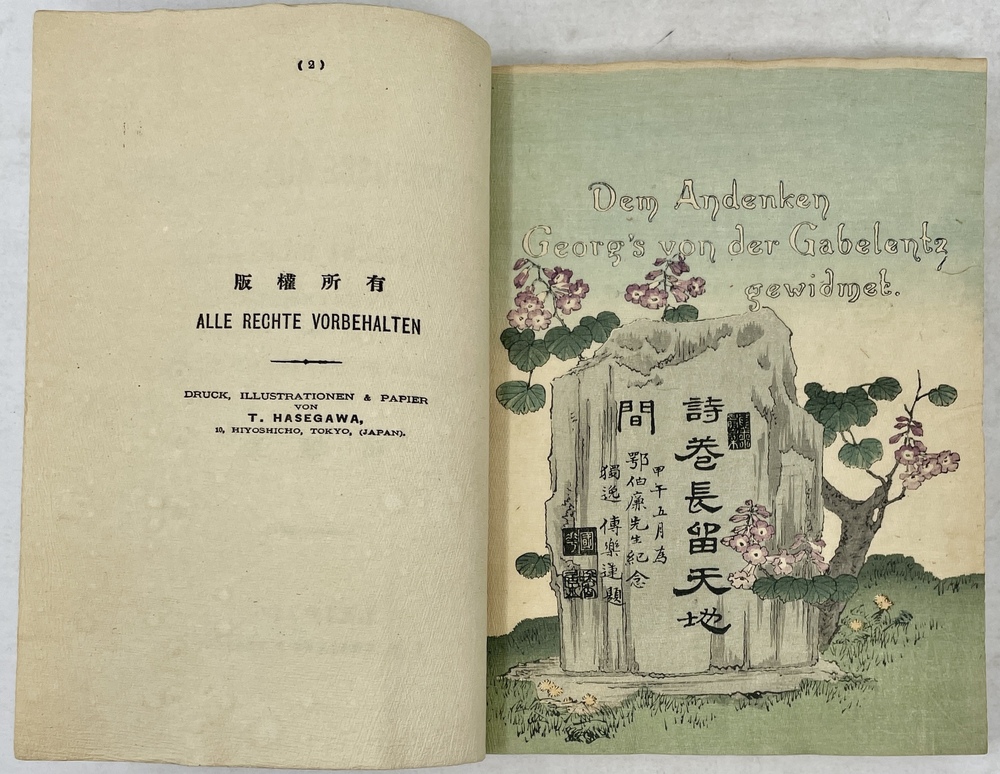 (2)
版權所有
ALLE RECHTE VORBEHALTEN
DRUCK, ILLUSTRATIONEN & PAPIER
VON
T. HASEGAWA,
10, HIYOSHICHO, TOKYO, (JAPAN).
Dem Andenken
Georg's von der Gabelentz
gewidmet.
詩卷長留天地
間
甲午五月為
鄂伯廉先生紀念
獨逸 傅樂連題